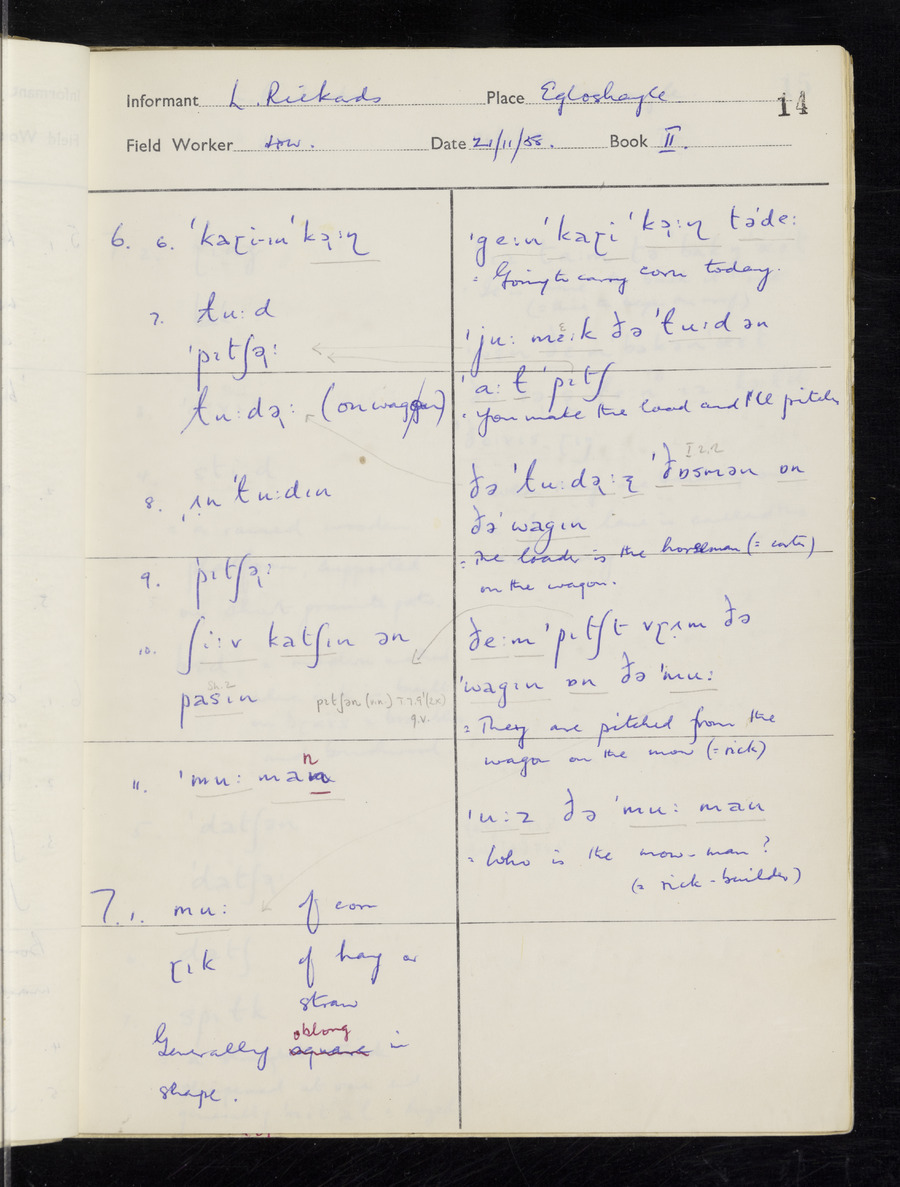 Informant L. Rickards Place Egloshayle 14
Field Worker Date 21/11/55. Book II.
6. 6. ˈkaɽi·ɪnˈkə̢:ɳ
7. ɫu:d
ˈpɪtʃə̢:
ɫu:də̢: (on waggon)
8. ɪnˈɫu:dɪn
9. ˈpɪtʃə̢:
10. ʃi:v katʃɪn ən
Sh.2
pasɪn pɪtʃən (v.n.) 7.7.9 (2x)
q.v.
n
11. ˈmu: man
7. 1. mu: of corn
ɽɪk of hay or
straw
oblong
Generally square in
shape.
ˈge:n ˈkaɽi ˈkə̢:ɳ təˈde:
= Going to carry corn today.
ˈju: mɛ:k ðə ˈɫu:d ən
ˈa: ɫ ˈpɪtʃ
= You make the load and I'll pitch
I 2.2
ðə ˈɫu:də̢:z ˈðɒsmən ɒn
ðəˈwagɪn
= The loader is the horseman (= carter)
on the wagon.
ðe:m ˈpɪtʃt vɽɪm ðə
ˈwagɪn ɒn ðə ˈmu:
= They are pitched from the
wagon on the mow (= rick)
ˈu:z ðə ˈmu: man
= Who is the mow-man?
(= rick-builder)